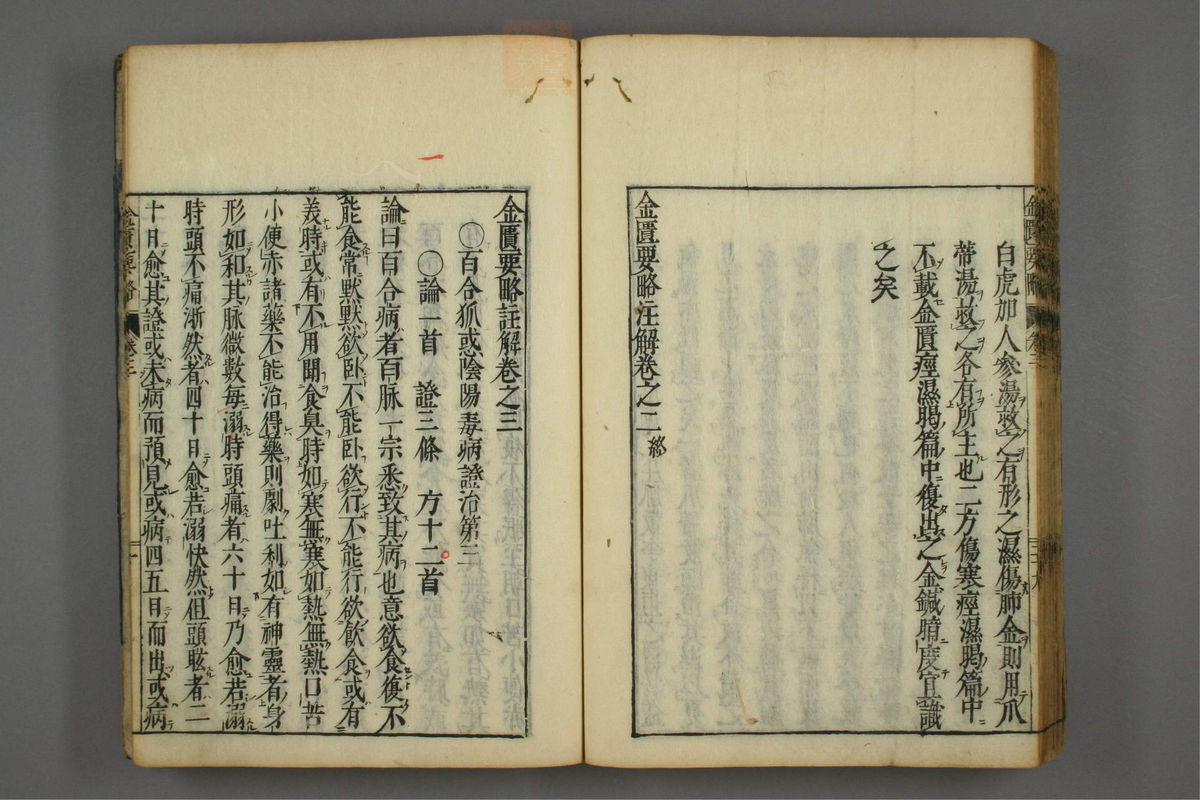 白虎加人參湯救之有形之濕傷肺金則用瓜
蒂湯救之各有所主也二方傷寒痙濕暍篇中
不載金匱痙濕暍篇中復出之金鍼暗度宜識
之矣
金匱要略註解卷之二終
金匱要略註解卷之三
〇百合狐惑陰陽毒病證治第三
〇論一首 證三條 方十二首
論曰百合病者百脉一宗悉致其病也意欲食復不
能食常默默欲卧不能卧欲行不能行欲飲食或有
美時或有不用聞食臭時如寒無寒如熱無熱口苦
小便赤諸藥不能治得藥則劇吐利如有神靈者身
形如和其脉微數每溺時頭痛者六十日乃愈若溺
時頭不痛淅然者四十日愈若溺快然但頭眩者二
十日愈其證或未病而預見或病四五日而出或病
金匱要略